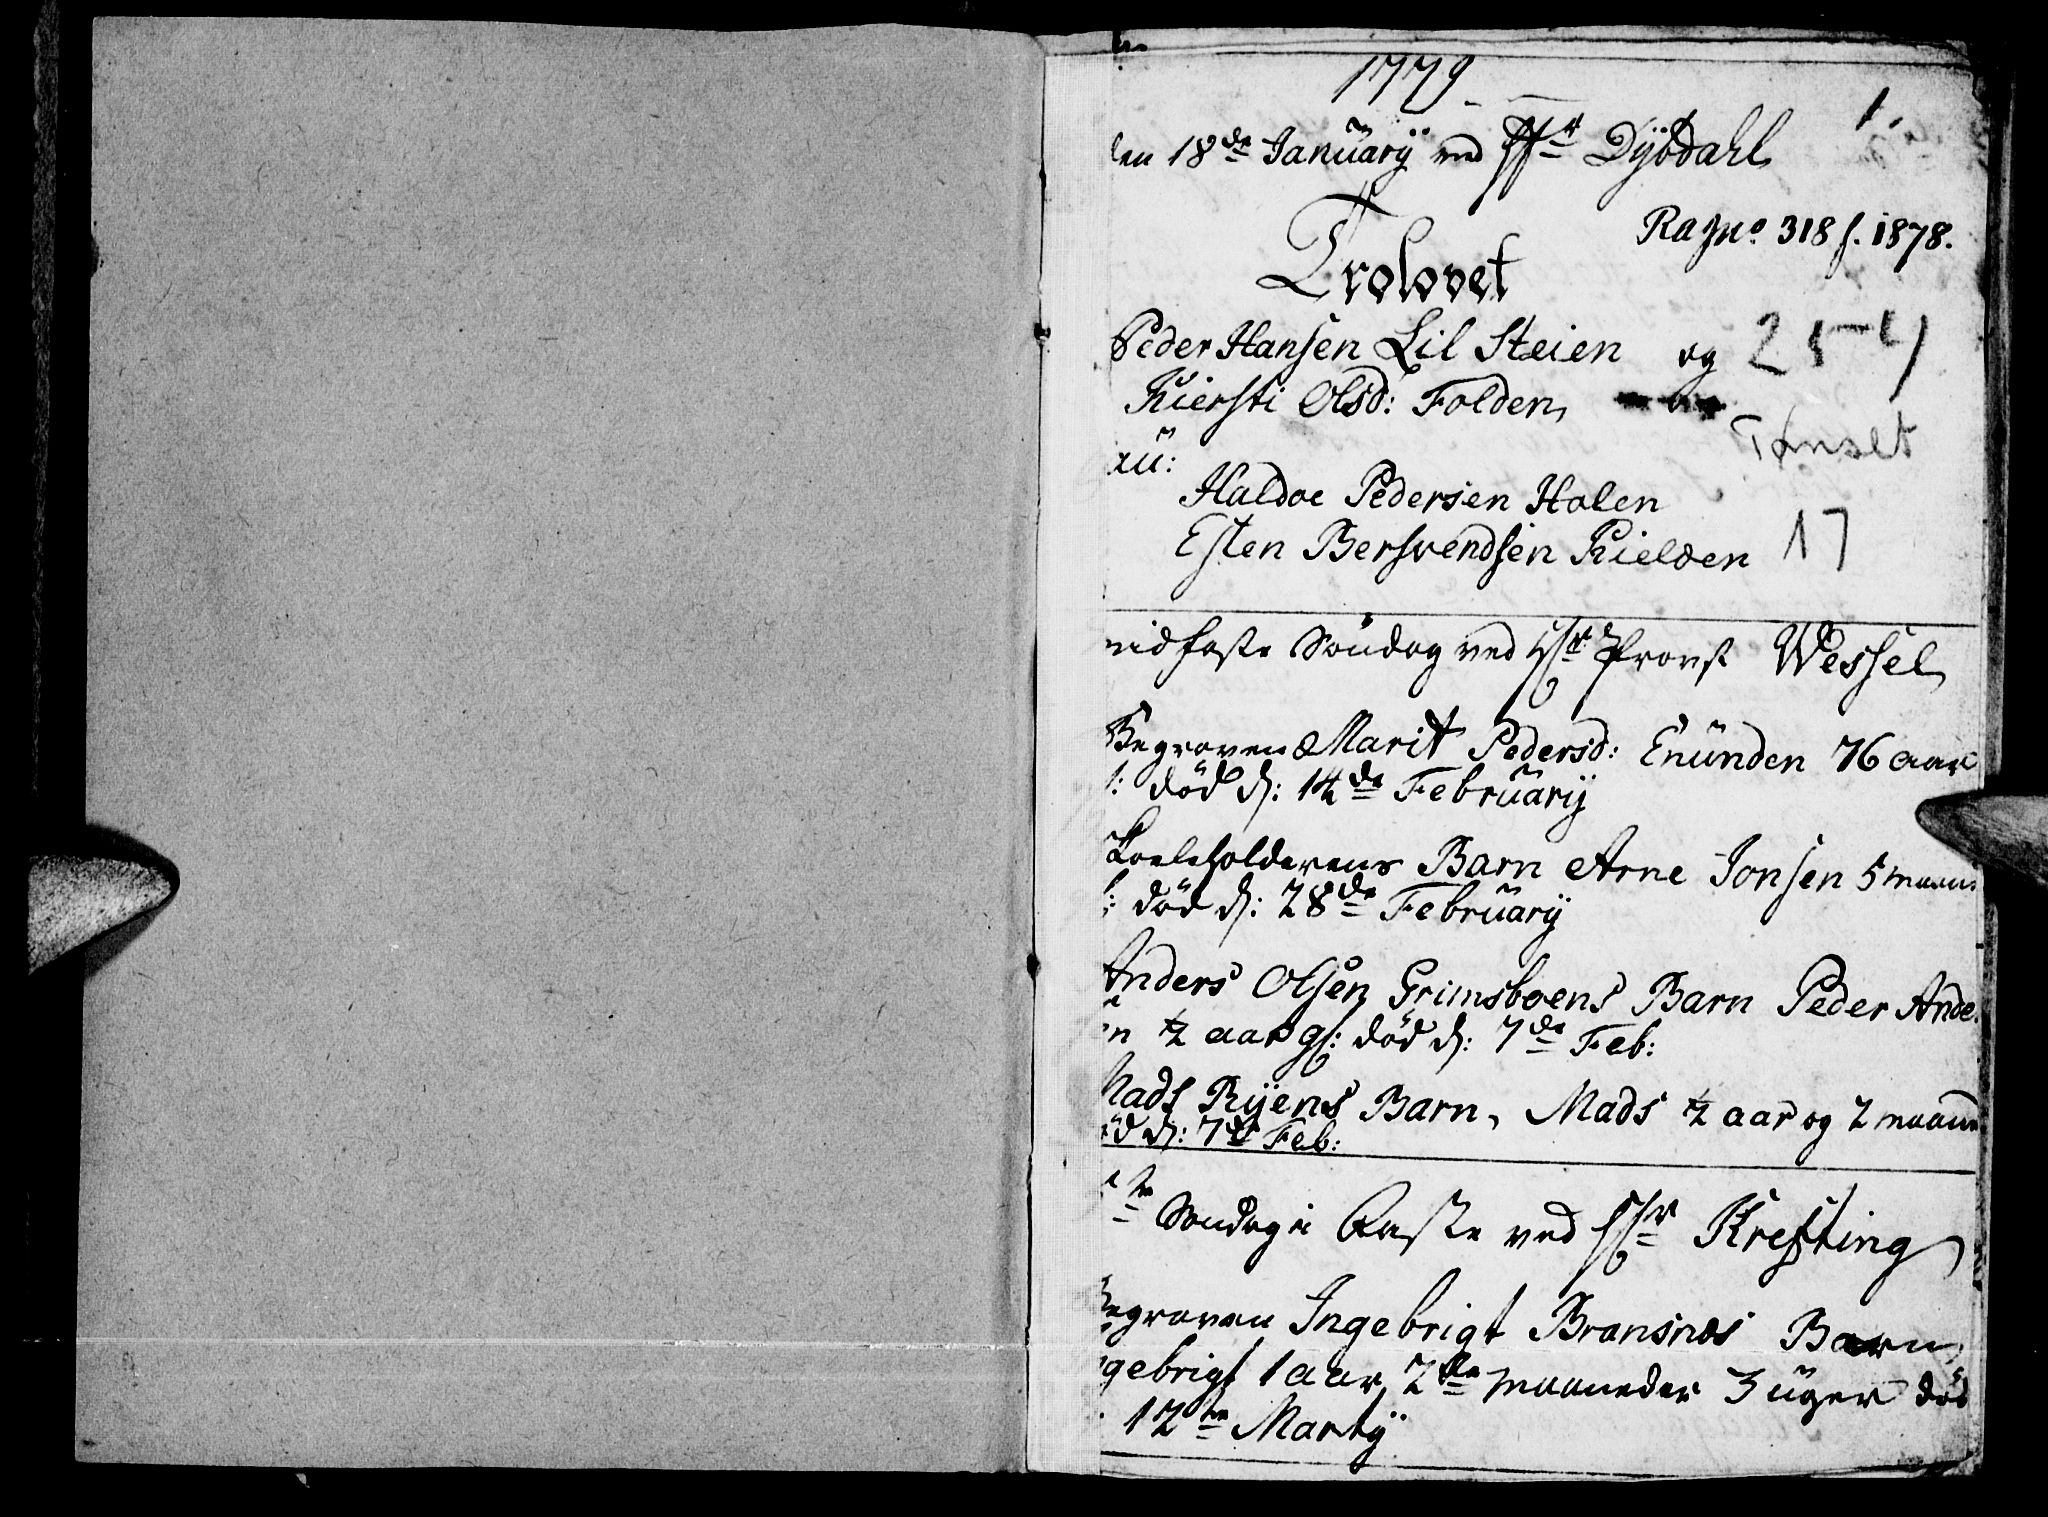 1779
1.
den 18de Januarÿ ved Hr Dÿbdahl
Ragno. 318 f. 1878.
Trolovet
Peder Hansen Lil Steien og
254
Kiersti Olsd: Folden,
Tønset
Haldoe Pedersen Holen
Esten Bersvendsen Kielden
17
midfaste Søndag ved Hr Provst Wessel
Begraven Marit Pedersd: Enunden 76 aar
død d: 14de Februarÿ
Barn Arne Jonsen 5 maan
død d: 28de Februarÿ
Anders Olsen Grimsboens Barn Peder Ande
en ½ aar gl: død d: 7de Feb:
Mads Rÿens Barn, Mads ½ aar og 2 maan
død d: 7de Feb:
Søndag i Faste ved Hr Krefting
Begraven Ingebrigt Bransnes Barn
gebrigt 1 aar 2de maaneder 3 uger død
12te Martÿ